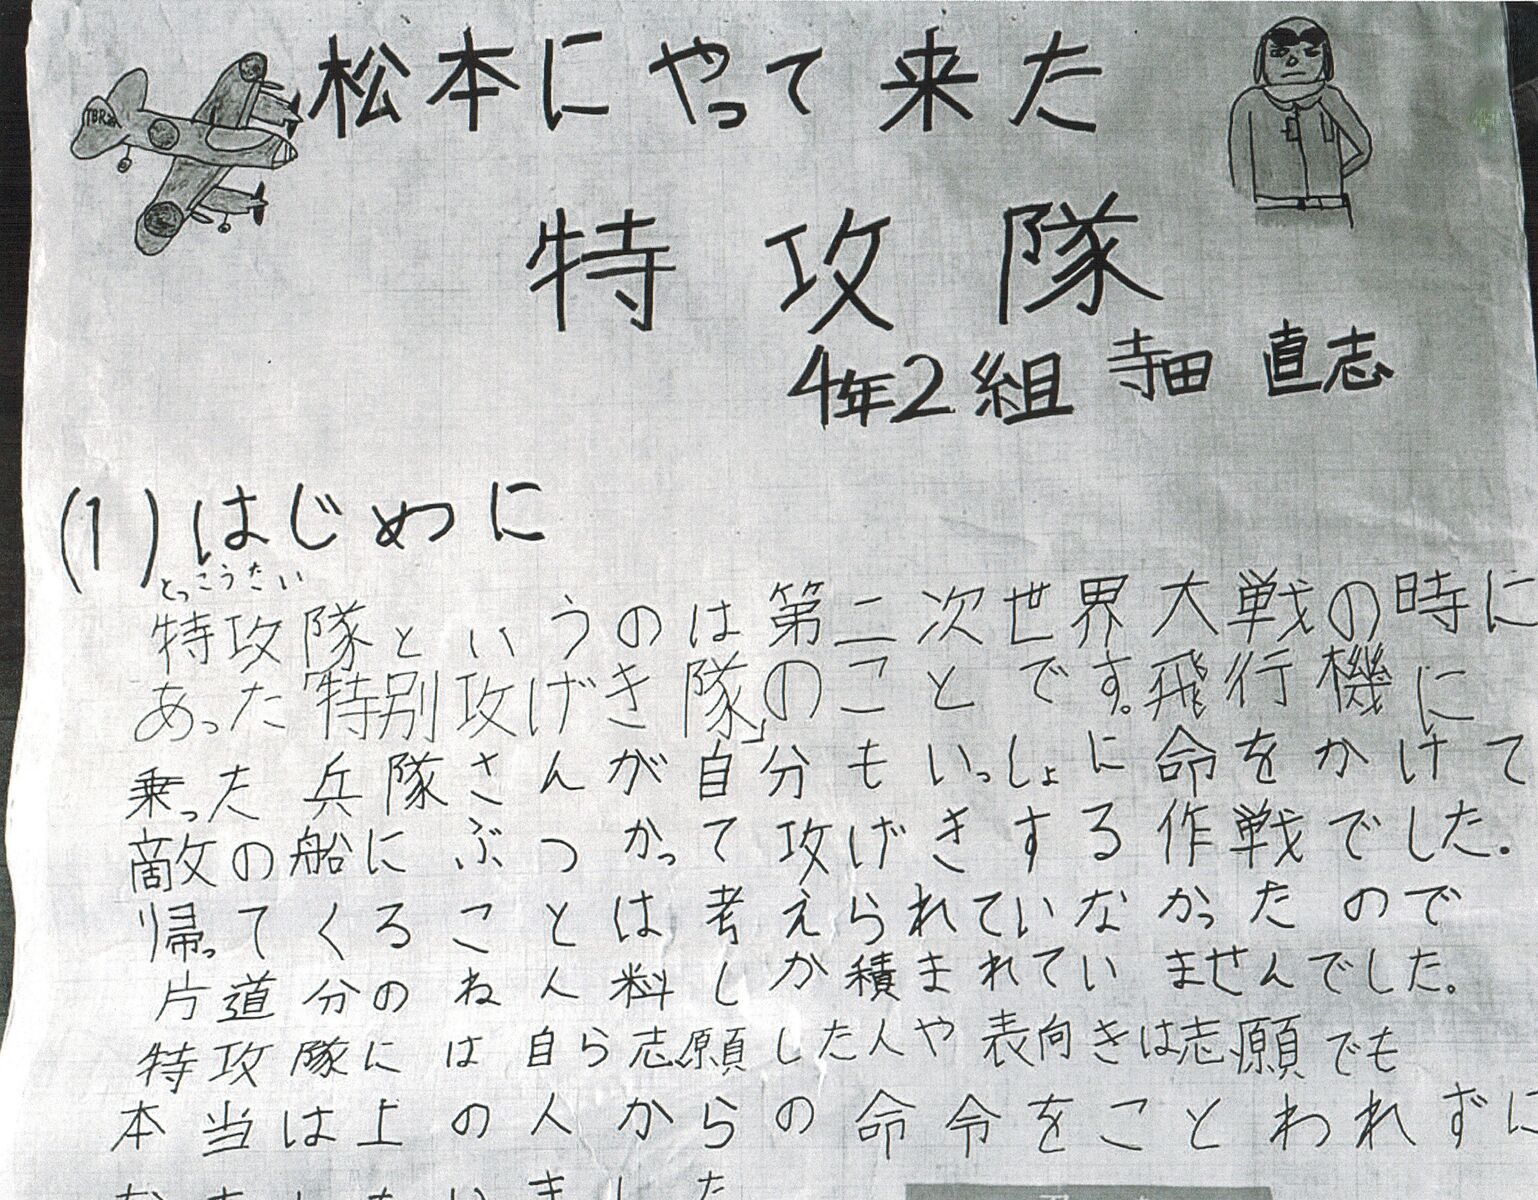 松本にやって来た
特攻隊
4年2組 寺田 直志
(1)はじめに
とっこうたい
特攻隊というのは第二次世界大戦の時に
あった「特別攻げき隊」のことです。飛行機に
乗った兵隊さんが自分もいっしょに命をかけて
敵の船にぶつかって攻げきする作戦でした。
帰ってくることは考えられていなかったので
片道分のねん料しか積まれていませんでした。
特攻隊には自ら志願した人や表向きは志願でも
本当は上の人からの命令をことわれずに